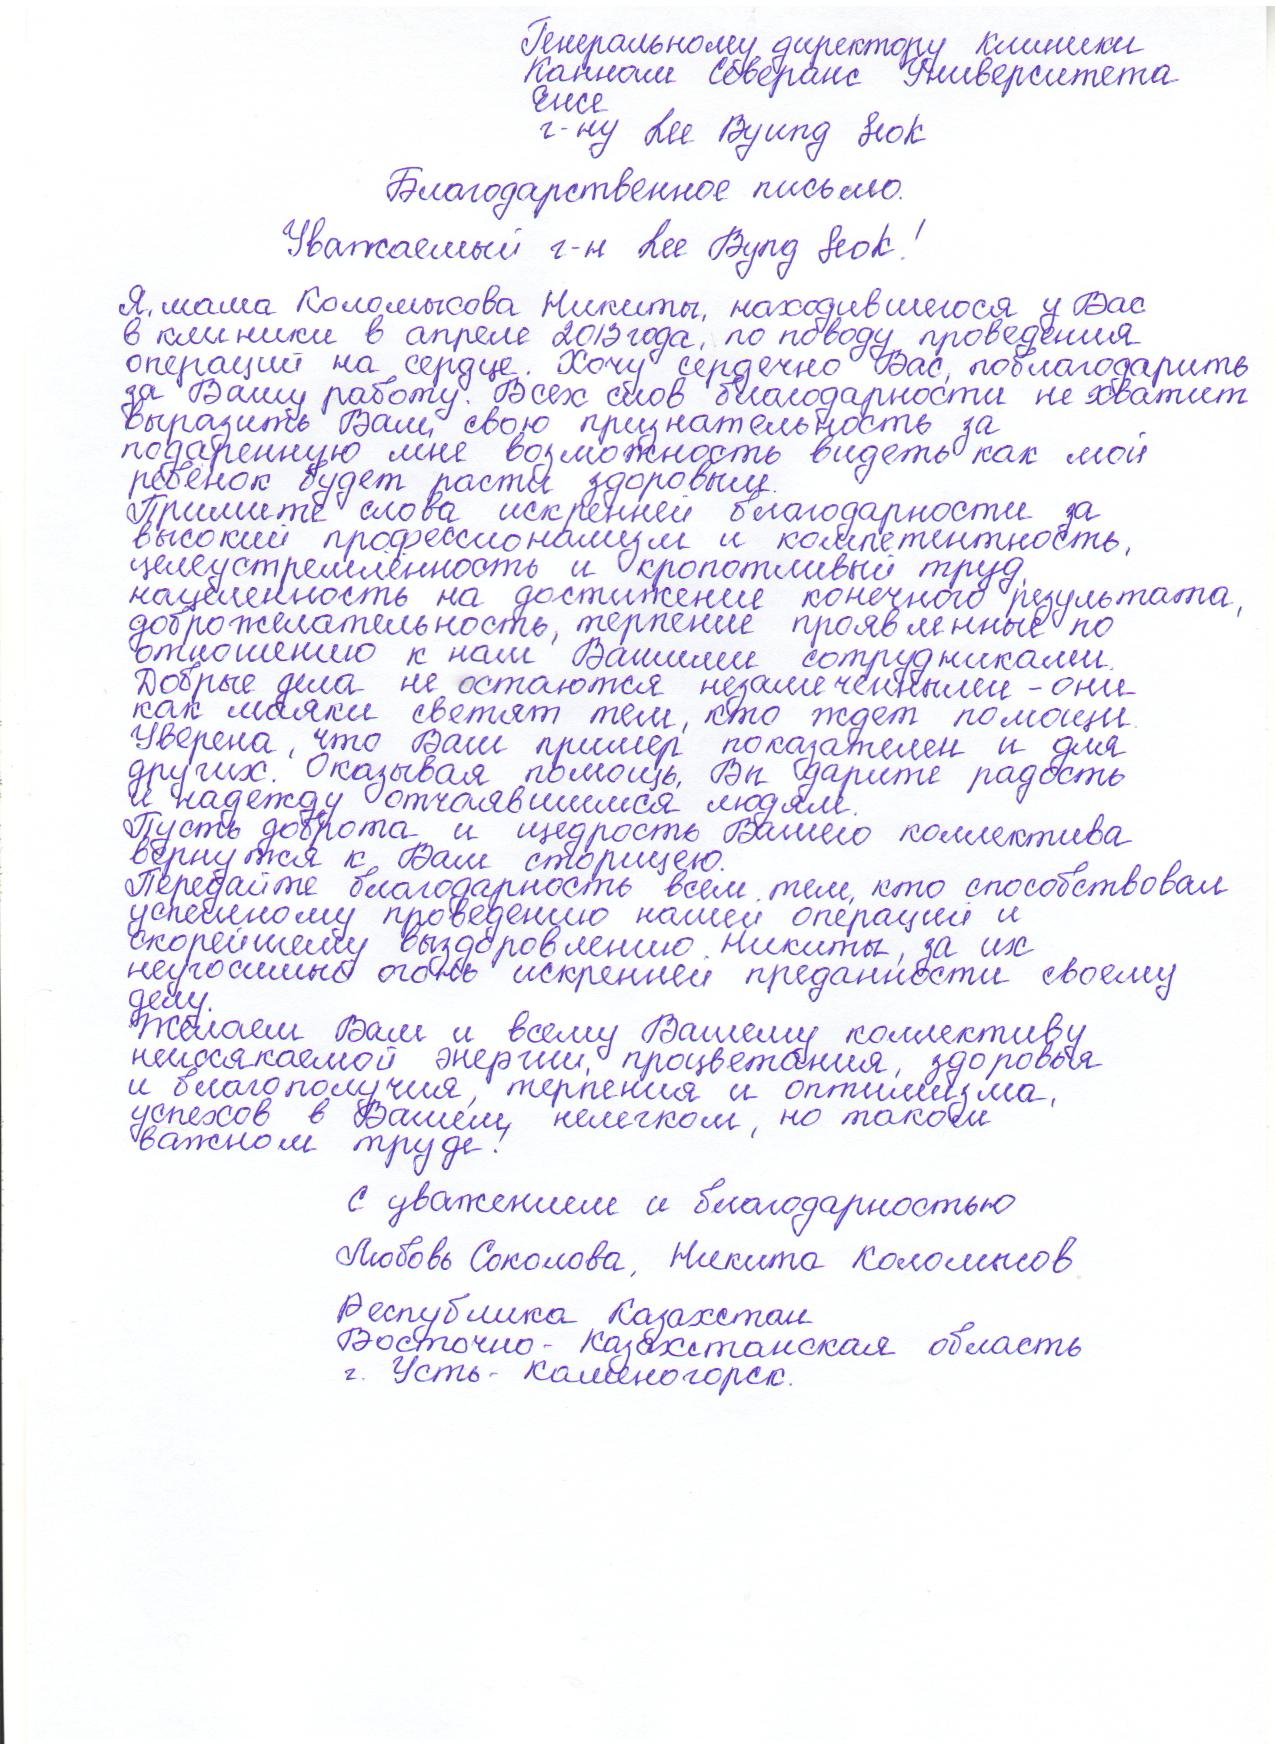 Генеральному директору Клиники
Каннам Северанс Университета
Енсе
г-ну Lee Byung Seok
Благодарственное письмо.
Уважаемый г-н Lee Byng Seok!
Я, мама Коломысова Никиты, находившегося у Вас
в клиники в апреле 2013 года, по поводу проведения
операций на сердце. Хочу сердечно Вас, поблагодарить
за Вашу работу. Всех слов благодарности не хватит
выразить Вам, свою признательность за
подаренную мне возможность видеть как мой
ребенок будет расти здоровым.
Примите слова искренней благодарности за
высокий профессионализм и компетентность,
целеустремлённость и кропотливый труд,
нацеленность на достижение конечного результата,
доброжелательность, терпение проявленные по
отношению к нам Вашими сотрудниками.
Добрые дела не остаются незамеченными - они
как маяки светят тем, кто ждет помощи.
Уверена, что Ваш пример показателен и для
других. Оказывая помощь, Вы дарите радость
и надежду отчаявшимся людям.
Пусть доброта и щедрость Вашего коллектива
вернутся к Вам сторицею.
Передайте благодарность всем тем, кто способствовал
успешному проведению нашей операций и
скорейшему выздоровлению Никиты, за их
неугосимый огонь искренней преданности своему
делу.
Желаем Вам и всему Вашему коллективу
неиссякаемой энергии, процветания, здоровья
и благополучия, терпения и оптимизма,
успехов в Вашем, нелегком, но таком
важном труде!
С уважением и благодарностью
Любовь Соколова, Никита Коломысов
Республика Казахстан
Восточно-Казахстанская область
г. Усть-Каменогорск.